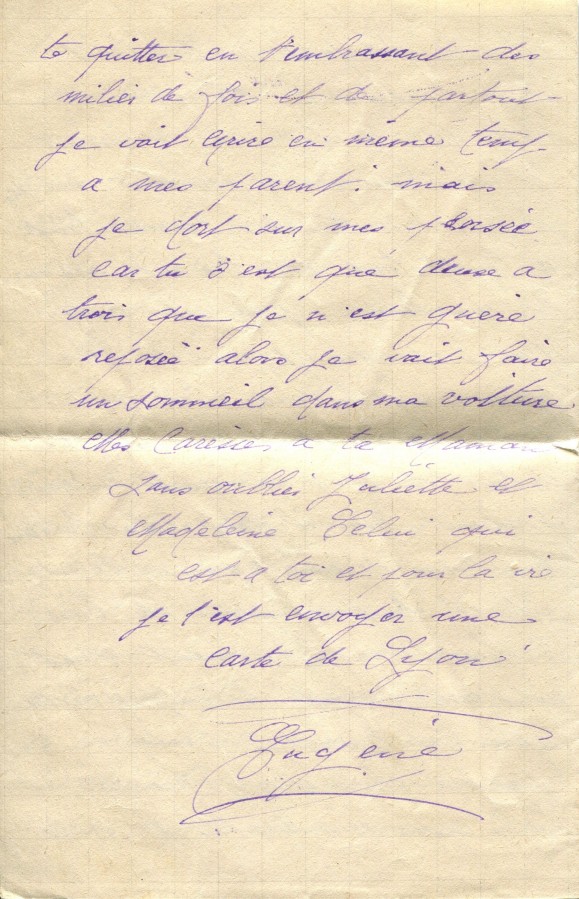 te quitter en t'embrassant des
milier de fois et de partout
je vait ecrire en même temp
a mes parent. mais
je dort sur mes
car tu s'est que deuse a
trois que je n'est guère
reposée alors je vait faire
un sommeil dans ma voiture
Mes Caresses a ta Maman
sans oublier Juliette et
Madeleine Celui qui
est a toi et pour la vie
je t'est envoyer une
carte de Lyon
Eugene